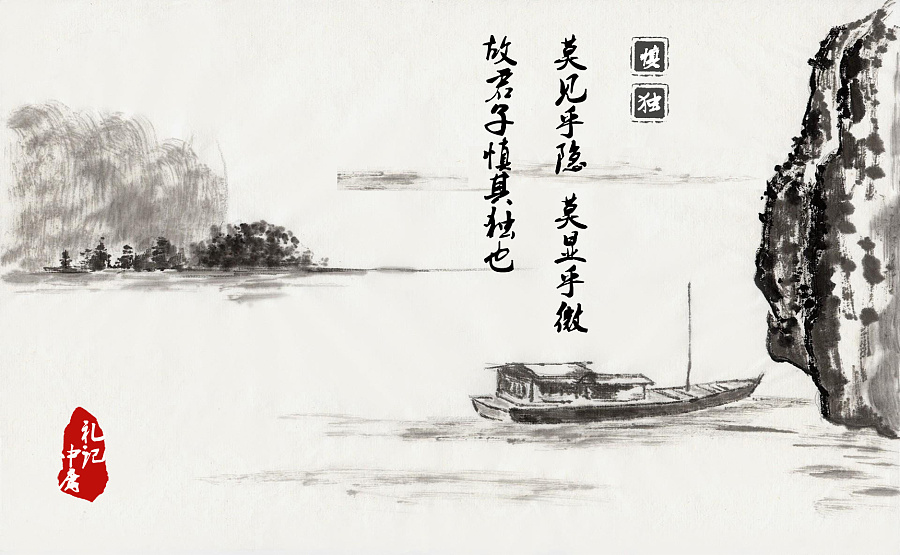 慎独
莫见乎隐 莫显乎微
故君子慎其独也
礼记
中庸